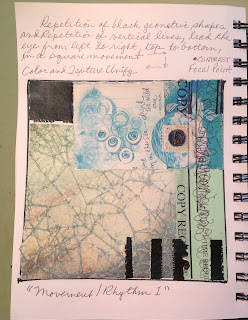 Repetition of black geometric shapes
and Repetition of vertical lines, lead the
eye from left to right, top to bottom,
in a square movement.
*CONTRAST
Color and Texture Unify
Focal Point
COPY RE
"Movement/Rhythm I"